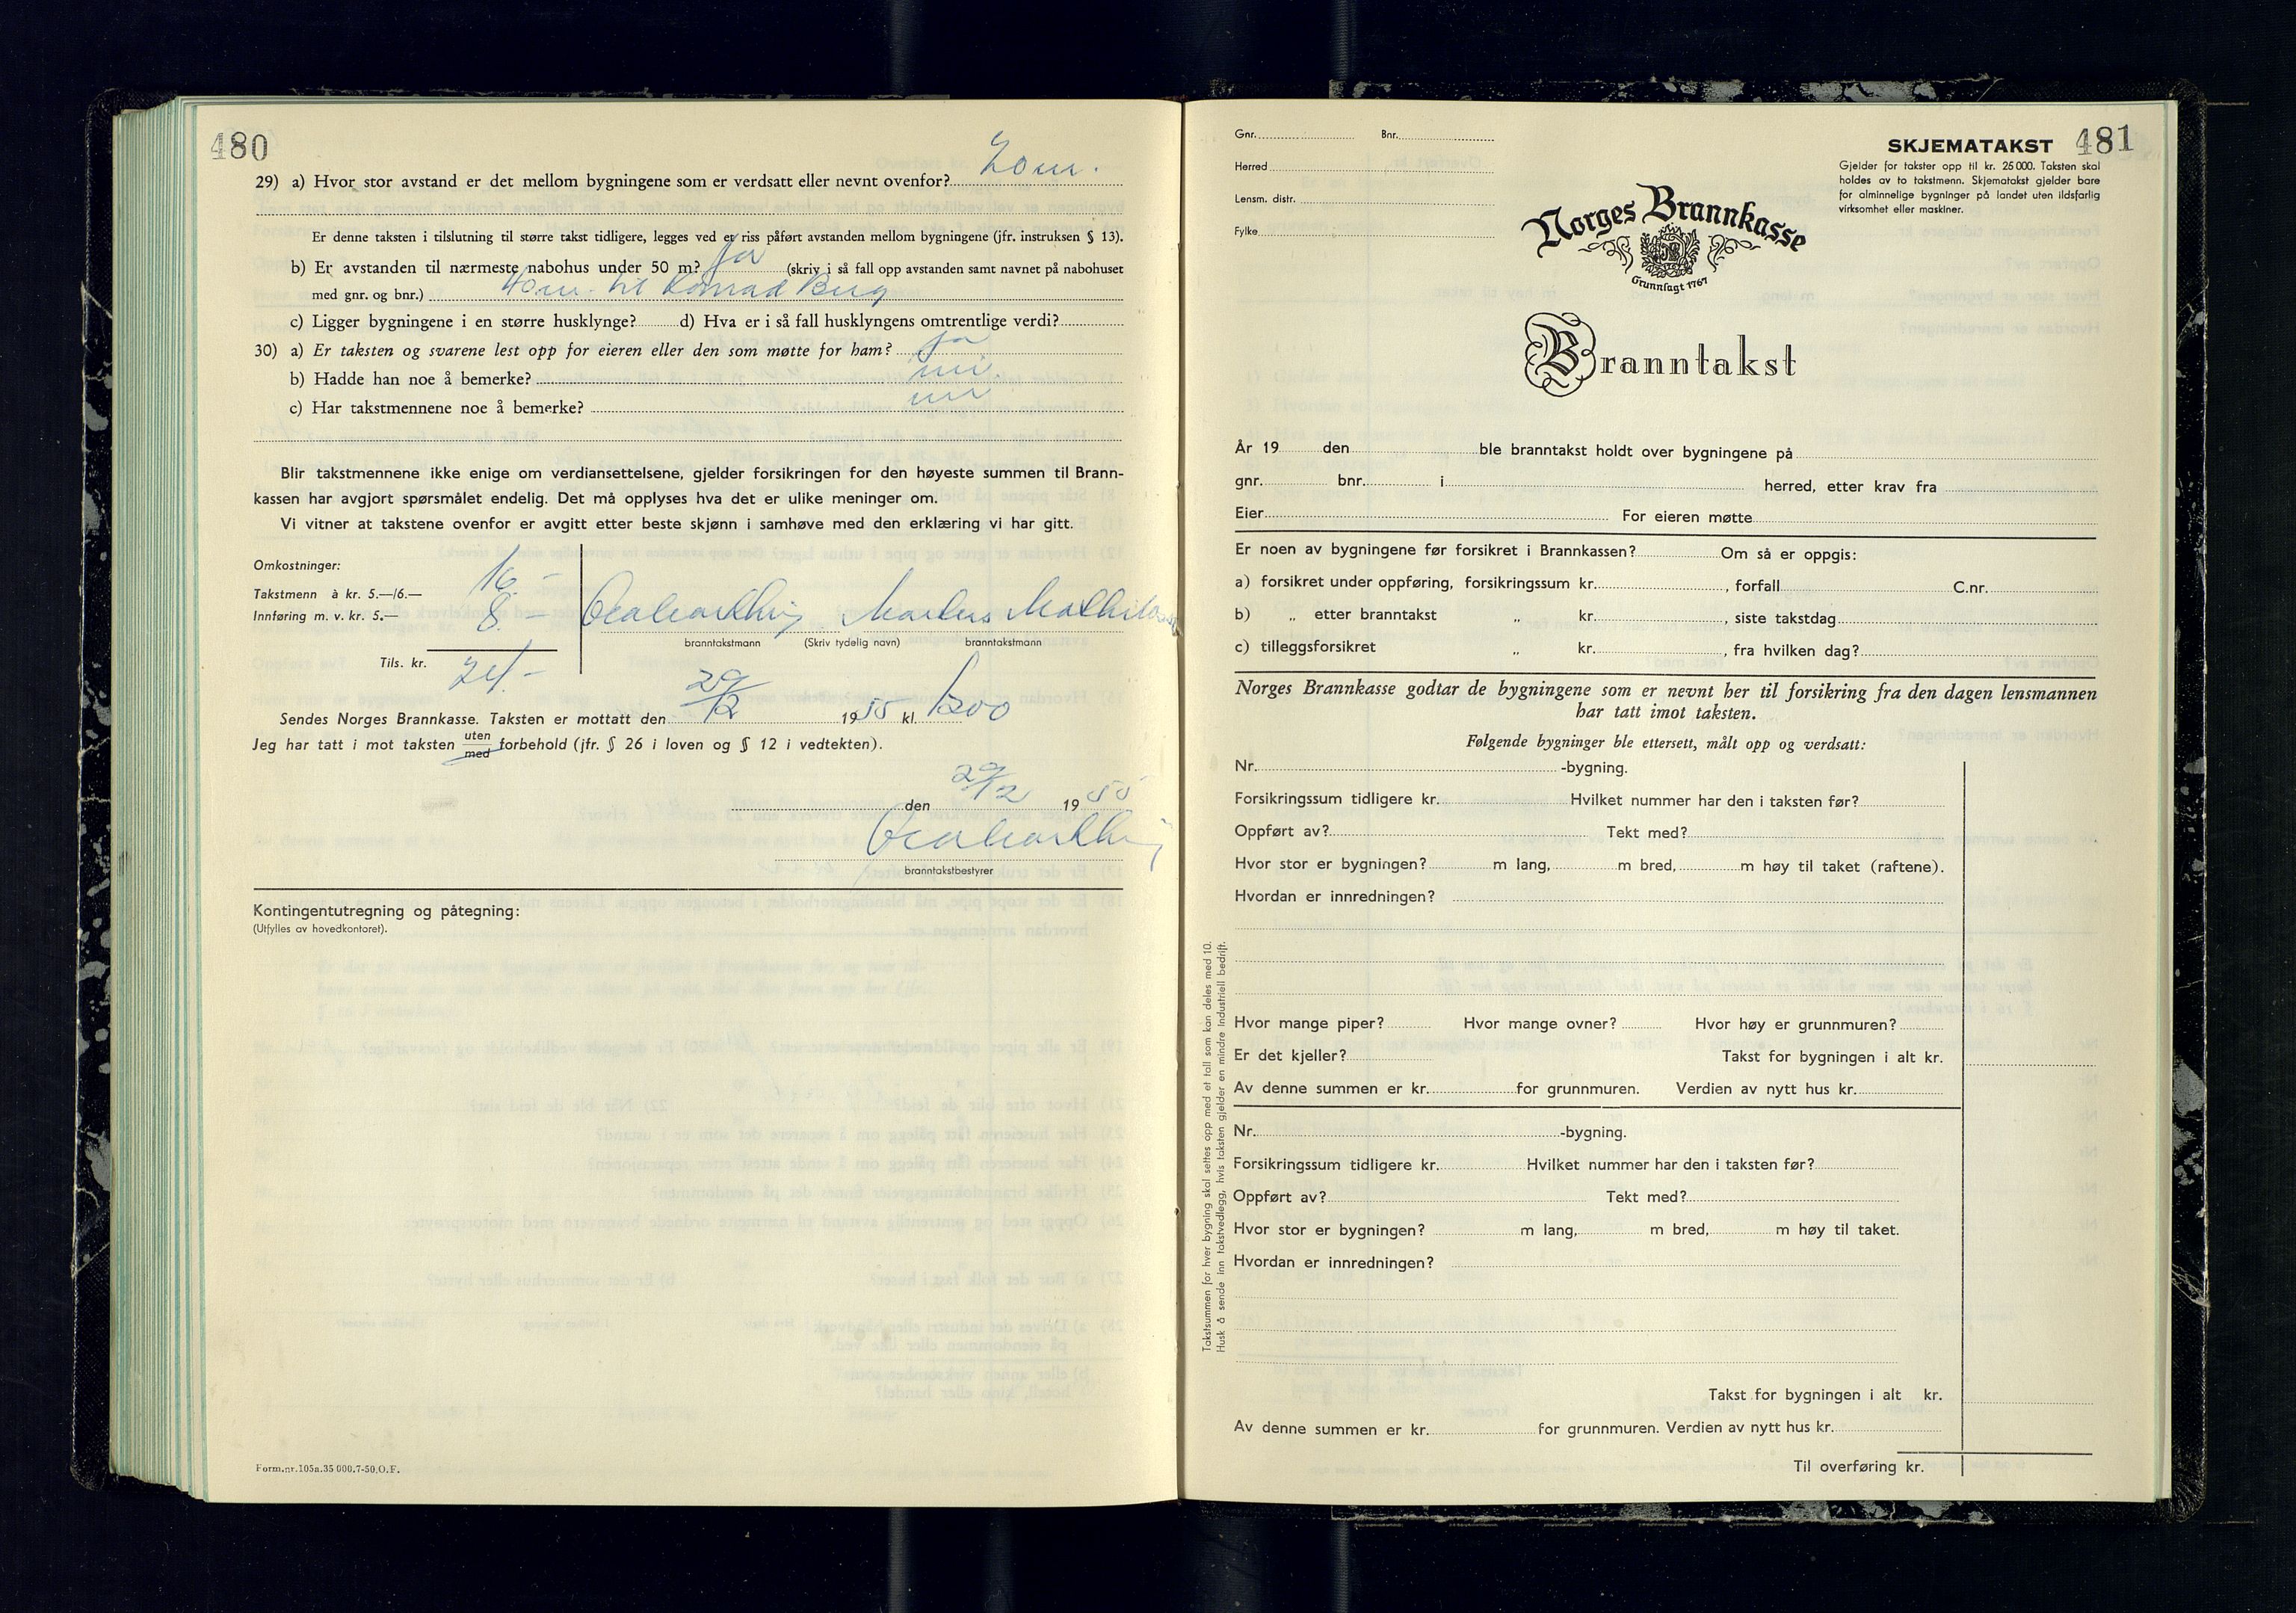 480
29) a) Hvor stor avstand er det mellom bygningene som er verdsatt eller nevnt ovenfor? 20 m.
Er denne taksten i tilslutning til større takst tidligere, legges ved et riss påført avstanden mellom bygningene (jfr. instruksen § 13).
b) Er avstanden til nærmeste nabohus under 50 m? Ja (skriv i så fall opp avstanden samt navnet på nabohuset
med gnr. og bnr.) 40 m. til Konrad Berg
c) Ligger bygningene i en større husklynge? d) Hva er i så fall husklyngens omtrentlige verdi?
30) a) Er taksten og svarene lest opp for eieren eller den som møtte for ham? Ja
b) Hadde han noe å bemerke? nei.
c) Har takstmennene noe å bemerke? nei
Blir takstmennene ikke enige om verdiansettelsene, gjelder forsikringen for den høyeste summen til Brann-
kassen har avgjort spørsmålet endelig. Det må opplyses hva det er ulike meninger om.
Vi vitner at takstene ovenfor er avgitt etter beste skjønn i samhøve med den erklæring vi har gitt.
Omkostninger:
Takstmenn à kr. 5.—/6.— 16.-
Innføring m. v. kr. 5.— 8.-
Marius
branntakstmann (Skriv tydelig navn) branntakstmann
Tils. kr. 24.-
Sendes Norges Brannkasse. Taksten er mottatt den 29/12 1955 kl. 1200
Jeg har tatt i mot taksten uten med forbehold (jfr. § 26 i loven og § 12 i vedtekten).
den 29/12 1955
branntakstbestyrer
Kontingentutregning og påtegning:
(Utfylles av hovedkontoret).
Form.nr.105a.35 000.7-50.O.F.
Gnr. Bnr.
Herred
Lensm. distr.
Fylke
SKJEMATAKST 481
Gjelder for takster opp til kr. 25 000. Taksten skal
holdes av to takstmenn. Skjematakst gjelder bare
for alminnelige bygninger på landet uten ildsfarlig
virksomhet eller maskiner.
Norges Brannkasse
Grunnlagt 1767
Branntakst
År 19 den ble branntakst holdt over bygningene på
gnr. bnr. i herred, etter krav fra
Eier For eieren møtte
Er noen av bygningene før forsikret i Brannkassen? Om så er oppgis:
a) forsikret under oppføring, forsikringssum kr. , forfall C.nr.
b) „ etter branntakst „ kr. , siste takstdag
c) tilleggsforsikret „ kr. , fra hvilken dag?
Norges Brannkasse godtar de bygningene som er nevnt her til forsikring fra den dagen lensmannen
har tatt imot taksten.
Følgende bygninger ble ettersett, målt opp og verdsatt:
Nr. -bygning.
Forsikringssum tidligere kr. Hvilket nummer har den i taksten før?
Oppført av? Tekt med?
Hvor stor er bygningen? m lang, m bred, m høy til taket (raftene).
Hvordan er innredningen?
Hvor mange piper? Hvor mange ovner? Hvor høy er grunnmuren?
Er det kjeller? Takst for bygningen i alt kr.
Av denne summen er kr. for grunnmuren. Verdien av nytt hus kr.
Nr. -bygning.
Forsikringssum tidligere kr. Hvilket nummer har den i taksten før?
Oppført av? Tekt med?
Hvor stor er bygningen? m lang, m bred, m høy til taket.
Hvordan er innredningen?
Takst for bygningen i alt kr.
Av denne summen er kr. for grunnmuren. Verdien av nytt hus kr.
Til overføring kr.
Takstsummen for hver bygning skal settes opp med et tall som kan deles med 10.
Husk å sende inn takstvedlegg, hvis taksten gjelder en mindre industriell bedrift.